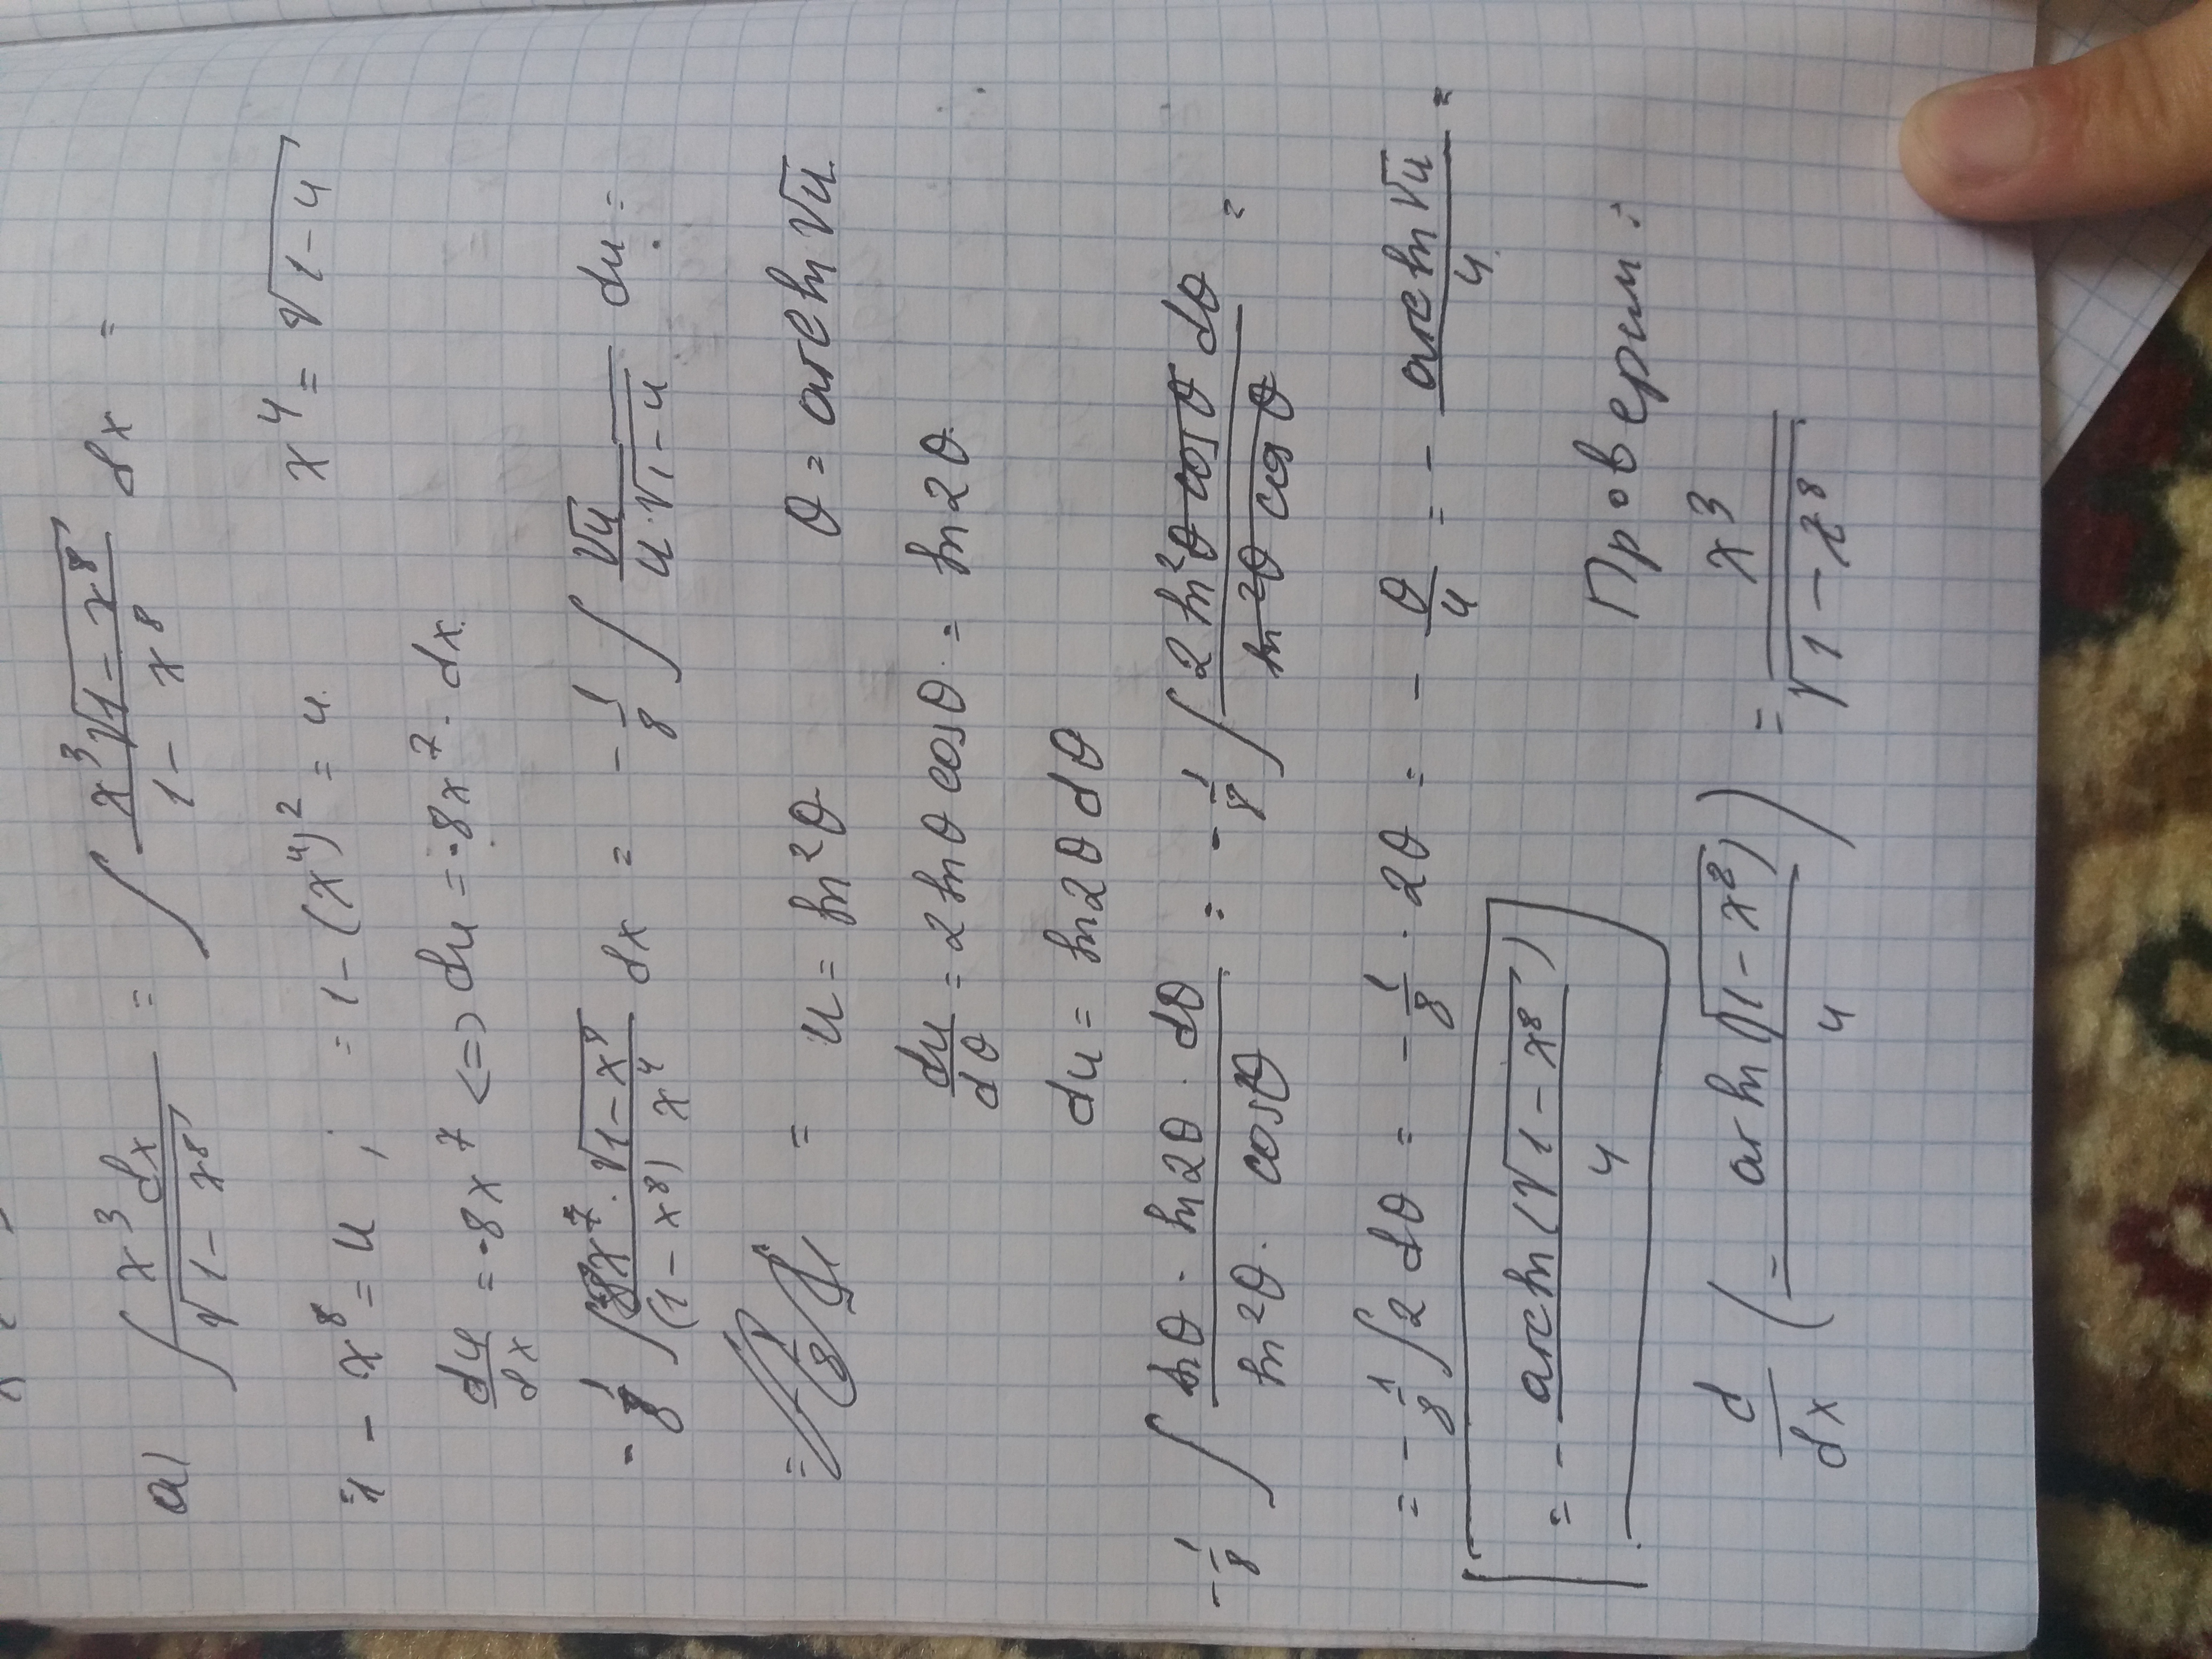 а) ∫ x³ dx / √(1 - x⁸) = ∫ x³√(1 - x⁸) / (1 - x⁸) dx =
= 1 - x⁸ = u ; = 1 - (x⁴)² = u x⁴ = √(1 - u)
du/dx = -8x⁷ <=> du = -8x⁷ · dx.
- 1/8 ∫ -8x⁷ · √(1 - x⁸) / ((1 - x⁸) x⁴) dx = - 1/8 ∫ √u / (u · √(1 - u)) du =
= u = sin²θ θ = arcsin √u
du/dθ = 2 sinθ cosθ = sin2θ
du = sin2θ dθ
- 1/8 ∫ sinθ · sin2θ · dθ / (sin²θ · cosθ) = - 1/8 ∫ 2 sin²θ cosθ dθ / (sin²θ cosθ) =
= - 1/8 ∫ 2 dθ = - 1/8 · 2θ = - θ/4 = - arcsin √u / 4 =
= - arcsin(√(1 - x⁸)) / 4 Проверим:
d/dx (- arsin(√(1 - x⁸)) / 4) = x³ / √(1 - x⁸)